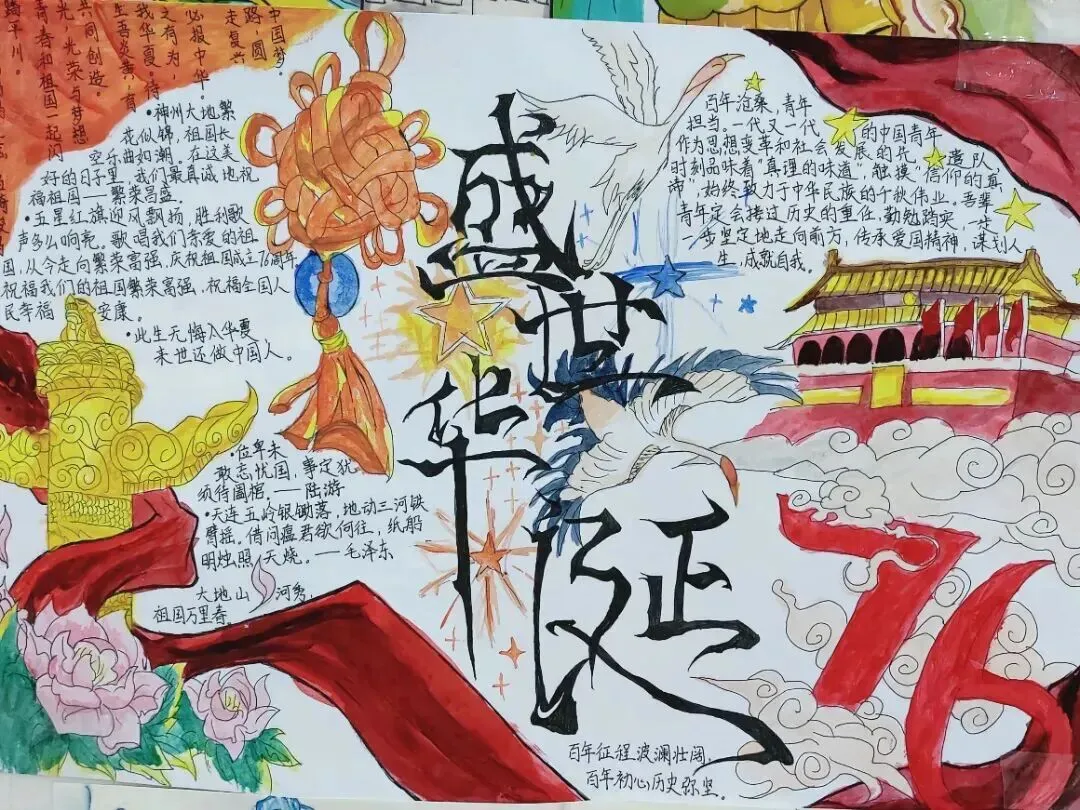 踏平川。
青春和祖国一起闪
光，光荣与梦想
共同创造。
生吾炎黄，有
我华夏。待
之有为，
必报中华
走复兴
路，圆
中国梦。
•神州大地繁
花似锦，祖国长
空乐曲如潮。在这美
好的日子里，我们最真诚地祝
福祖国——繁荣昌盛。
•五星红旗迎风飘扬，胜利歌
声多么响亮。歌唱我们亲爱的祖
国，从今走向繁荣富强，庆祝祖国成立76周年，
祝福我们的祖国繁荣富强，祝福全国人
民幸福安康。
•此生无悔入华夏
来世还做中国人。
•位卑未
敢忘忧国，事定犹
须待阖棺。——陆游
•天连五岭银锄落，地动三河铁
臂摇。借问瘟君欲何往，纸船
明烛照天烧。——毛泽东
大地山河秀，
祖国万里春。
盛世华诞
百年沧桑，青年
担当。一代又一代的中国青年
作为思想变革和社会发展的先遣队，
时刻品味着“真理的味道”，触摸“信仰的真
谛”，始终致力于中华民族的千秋伟业。吾辈
青年定会接过历史的重任，勤勉踏实，一步
一步坚定地走向前方，传承爱国精神，谋划人
生，成就自我。
76
百年征程波澜壮阔，
百年初心历史弥坚。